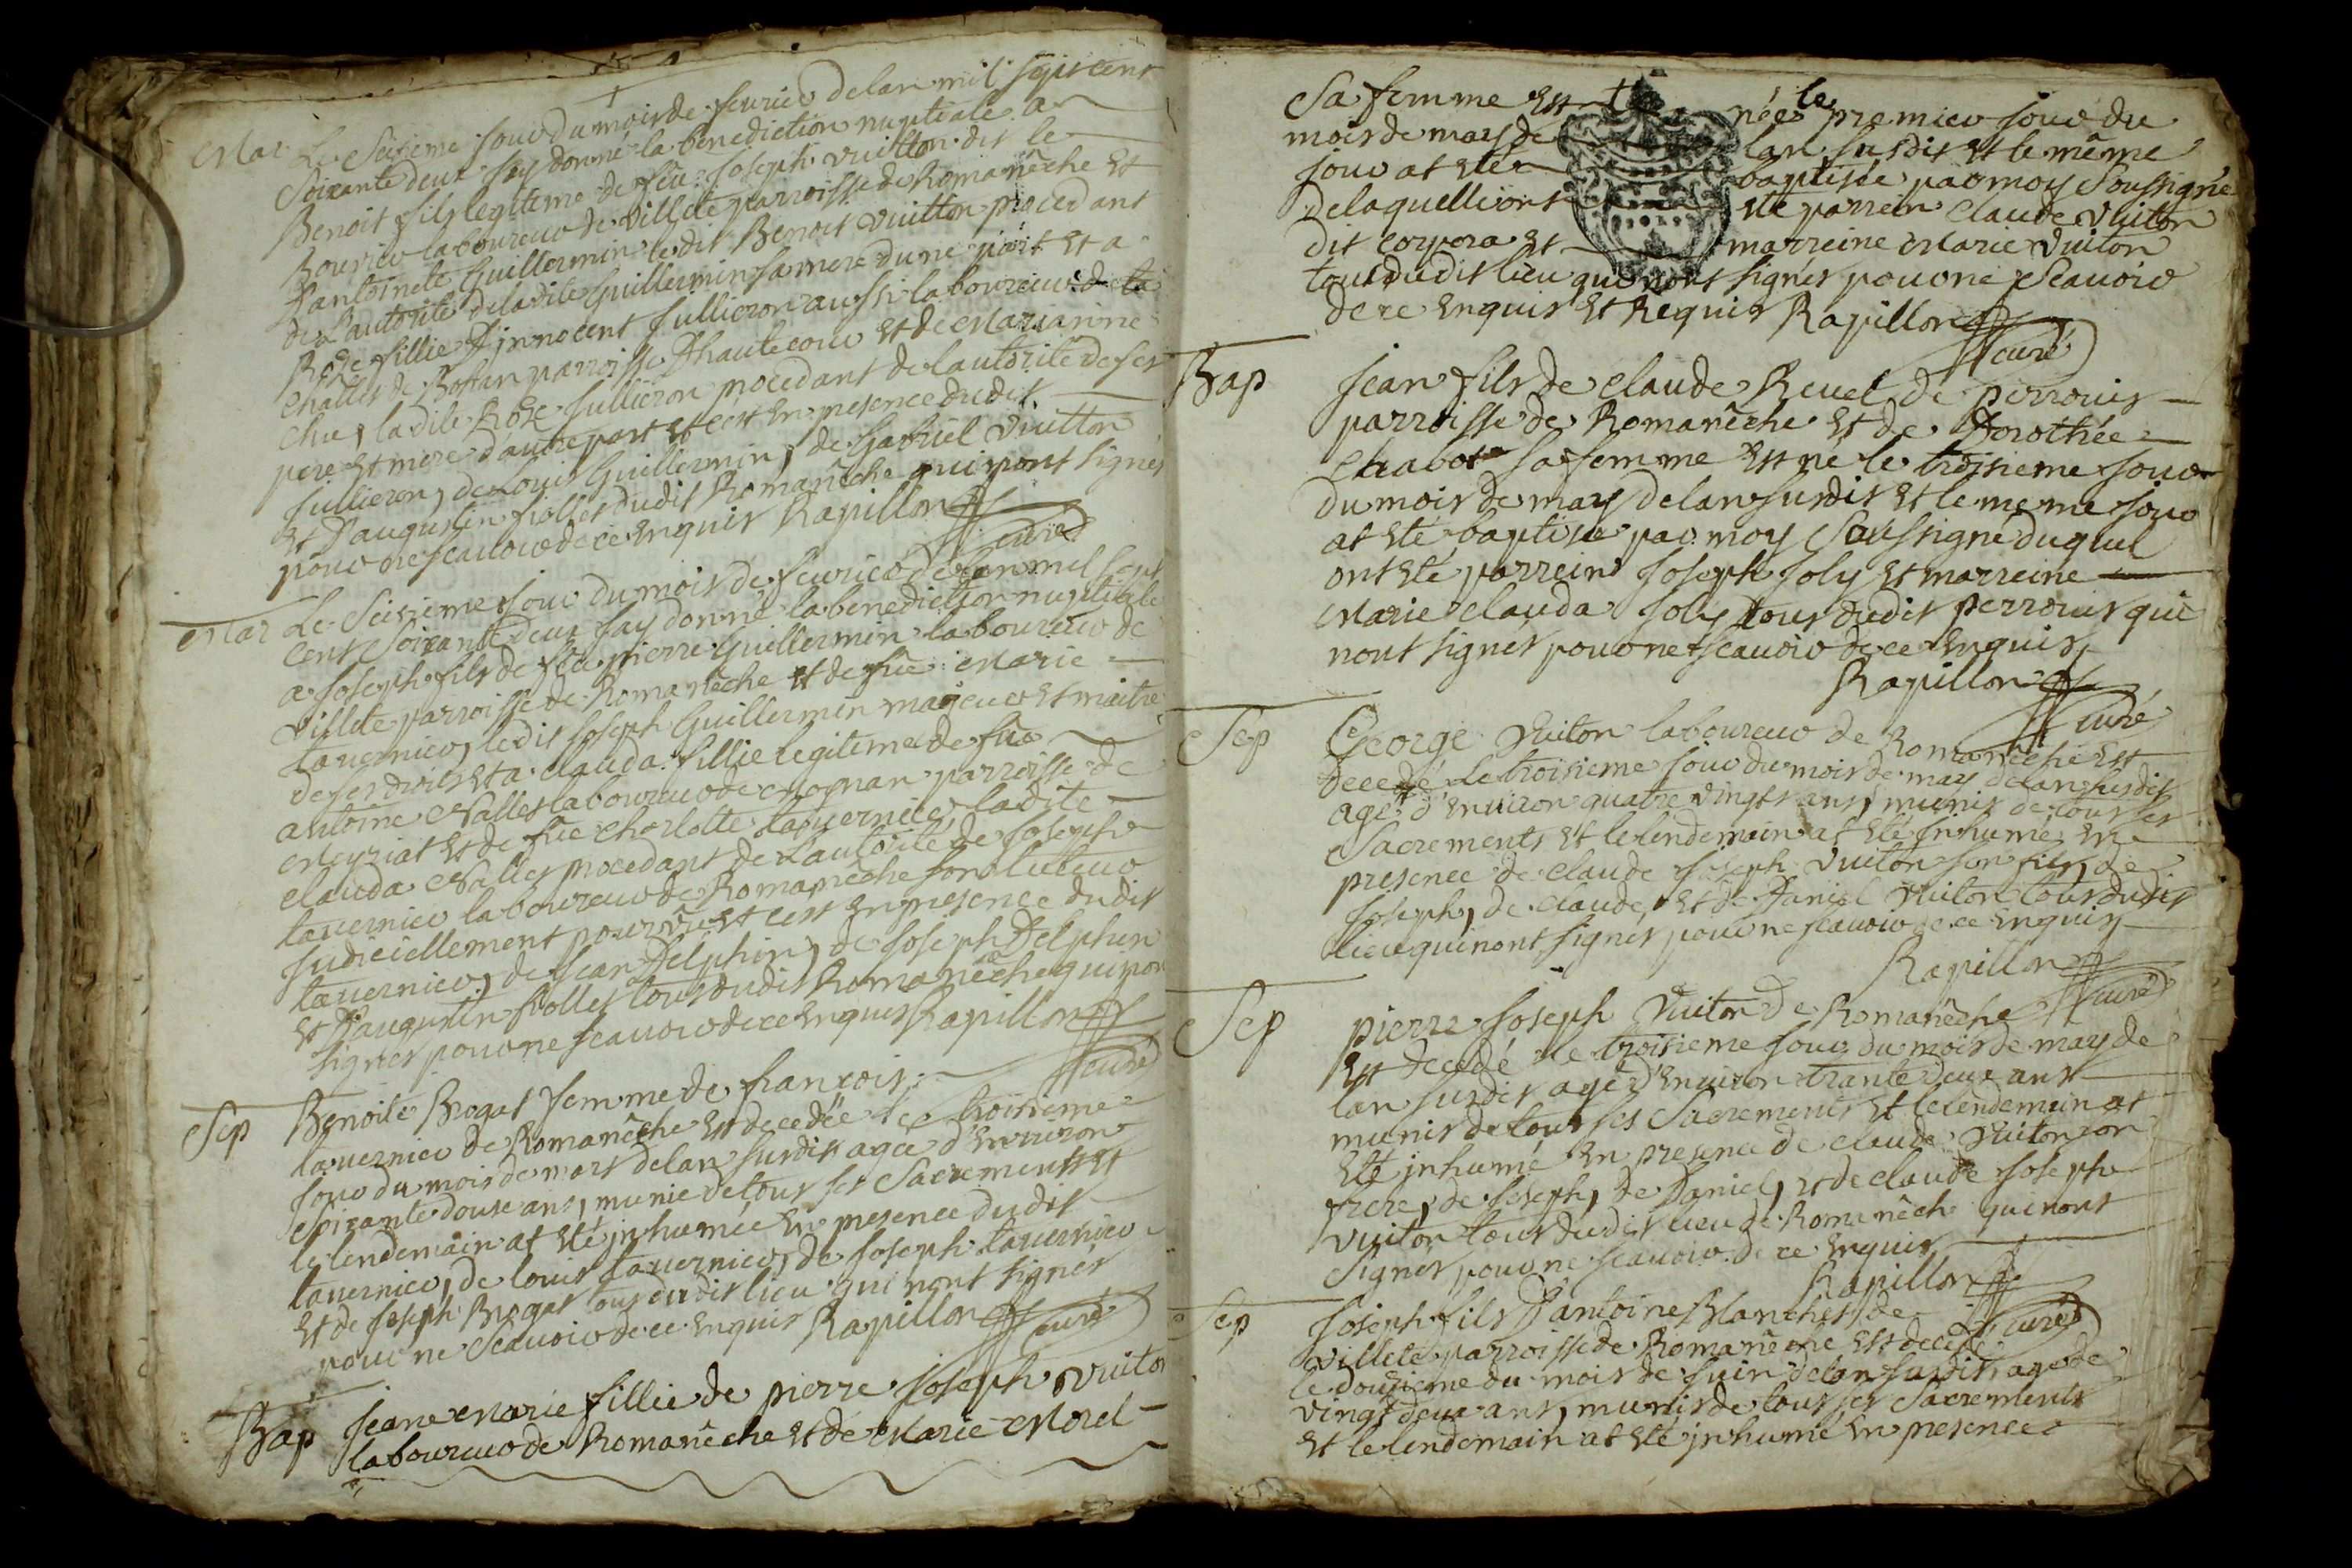 Mar Le Seisieme jour du mois de feurier de lan mil sept cent
Soixante deux jay donné la benediction nuptiale a
Benoit fils legiteme de feu Joseph vuitton dit le
Bourrier laboureur de villete parroisse de Romanêche et
d'antoinete Guillermin ledit Benoit vuitton procedant
de L'autorité de ladite Guillermin sa mere dune part et a
Roze fillie d'jnnocent Jullieron aussi laboureur de la
parroisse d'hautecour et de Marianne
ladite Roze Jullieron procedant de lautorité de ses
pere et mere d'autre part et cest en presence dudit
Jullieron, de Louis Guillermin, de Gabriel vuitton
et d'augustin fiolles dudit Romanêche qui nont signes
pour ne scauoir de ce enquis Rapillon
curé
Mar Le Seisieme jour du mois de feurier de lan mil sept
cent soixante deux jay donné la benediction nuptiale
a Joseph fils de feu pierre Guillermin laboureur de
villete parroisse de Romanêche et de füe Marie
tauernier, ledit Joseph Guillermin majeur et maitre
de ses droits et a Clauda fillie legiteme de feu
antoine Nalles laboureur de parroisse de
Meyriat et de füe Charlotte tauernier, ladite
Clauda Nalles procedant de Lautorité de Joseph
tauernier laboureur de Romanêche son tuteur
Judiciellement pourvu et cest en presence dudit
tauernier, de Jean Delphin, de Joseph Delphin
et d'augustin fiolles tous dudit Romanêche qui non
signes pour ne scauoir de ce enquis Rapillon
curé
Sep Benoite Brogat femme de françois
tauernier de Romanêche est decedée le troisieme
jour du mois de mars de lan susdit agée d'enuiron
Soixante douse ans, munie de tous ses Sacrements et
le lendemain at eté jnhumée en presence dudit
tauernier, de louis tauernier, de Joseph tauernier
et de Joseph Brogat tous dudit lieu qui nont signés
pour ne Scauoir de ce enquis Rapillon
curé
Bap Jeane Marie fillie de pierre Joseph vuiton
laboureur de Romanêche et de Marie Morel
Sa femme est née le premier jour du
mois de may de lan susdit et le même
jour at eté baptisée par moy Soussigné
de laquelle ont eté parrein Claude vuiton
dit Corpora et marreine Marie vuiton
tous dudit lieu qui nont signes pour ne Scauoir
de ce enquis et Requis Rapillon
curé
Bap Jean fils de Claude Reuel de perrouis
parroisse de Romanêche et de Dorothée
Chabot sa femme est né le troisieme jour
du mois de may de lan susdit et le meme jour
at eté baptisé par moy Soussigné duquel
ont eté parrein Joseph Joly et marreine
Marie Clauda Joly tous dudit perrouis qui
nont signes pour ne scauoir de ce enquis
Rapillon
curé
Sep George vuiton laboureur de Romanêche est
decedé le troisieme jour du mois de may de lan susdit
agé d'enuiron quatre vingts ans, munis de tous ses
Sacrements et le lendemain at eté jnhumé en
presence de Claude Joseph vuiton son fils, de
Joseph, de Claude, et de Daniel vuiton tous dudit
lieu qui nont signes pour ne scauoir de ce enquis
Rapillon
curé
Sep pierre Joseph vuiton de Romanêche
est decedé le troisieme jour du mois de may de
lan susdit agé d'enuiron trante deux ans
munis de tous ses Sacrements et le lendemain at
eté jnhumé en presence de Claude vuiton son
frere, de Joseph, de Daniel, et de Claude Joseph
vuiton tous dudit lieu de Romanêche qui nont
Signes pour ne scauoir de ce enquis
Rapillon
curé
Sep Joseph fils d'antoine Blanchet de
villete parroisse de Romanêche est decedé
le dousieme du mois de Juin de lan susdit, agé de
vingt deux ans, munis de tous ses Sacrements
et le lendemain at eté jnhumé en presence